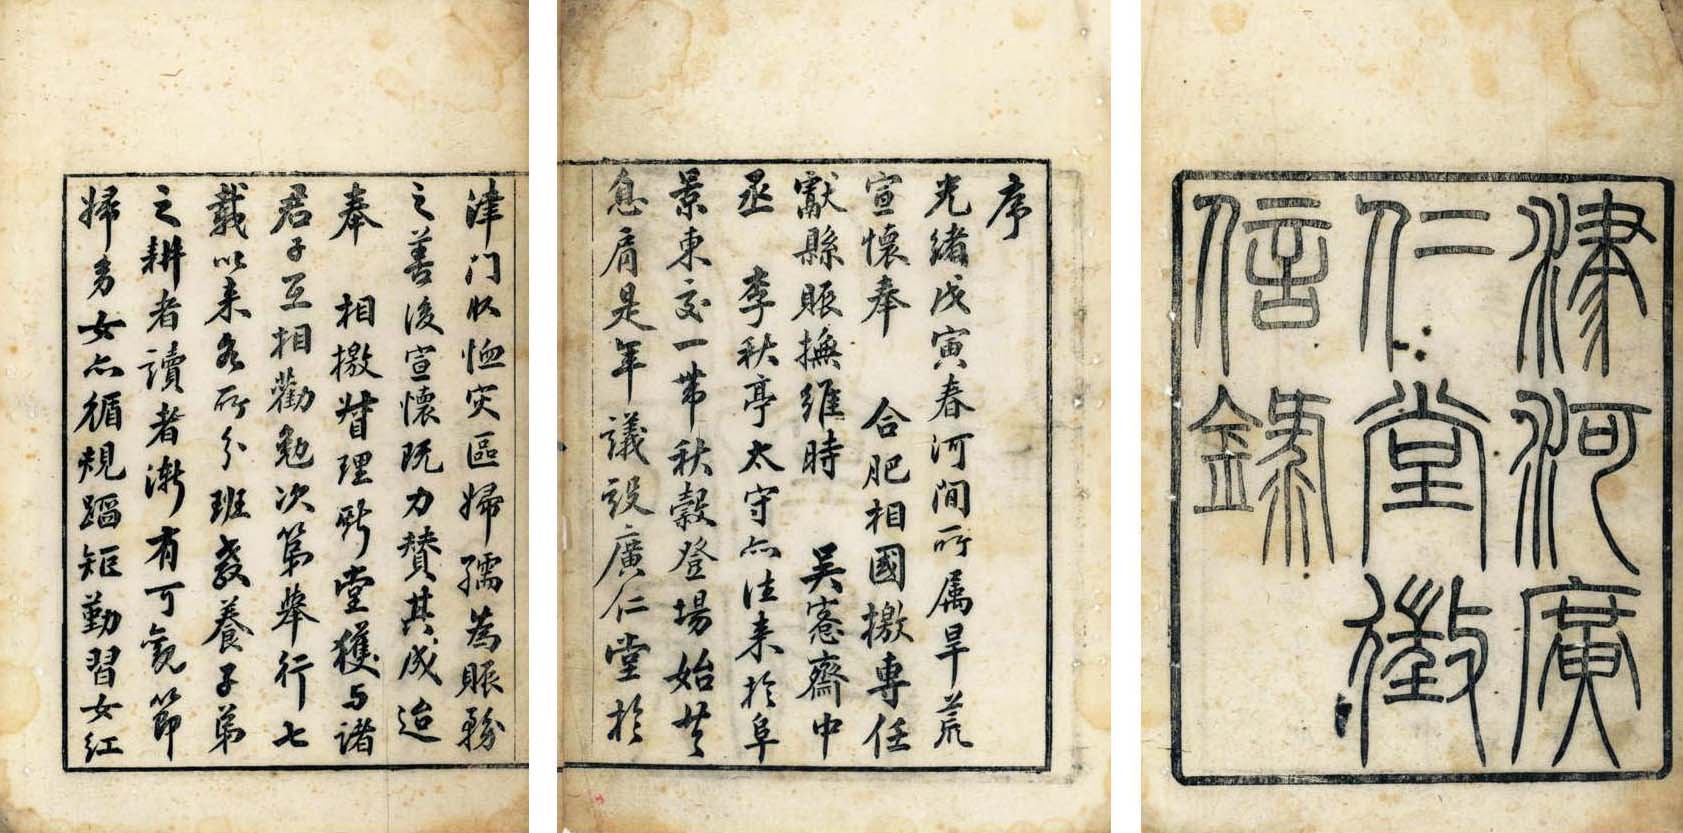 津河廣
仁堂徵
信錄
序
光緒戊寅春河間所属旱荒
宣懷奉 合肥相國檄專任
獻縣賑撫維時 吴愙齋中
丞 李秋亭太守亦往来於阜
景東交一帶秋穀登場始共
息肩是年議設廣仁堂於
津门收恤灾區婦孺為賑務
之善後宣懷既力賛其成迨
奉 相檄督理斯堂獲与諸
君子互相勸勉次第舉行七
載以来各所分班教養子弟
之耕者讀者漸有可觀節
婦男女亦循規蹈矩勤習女红